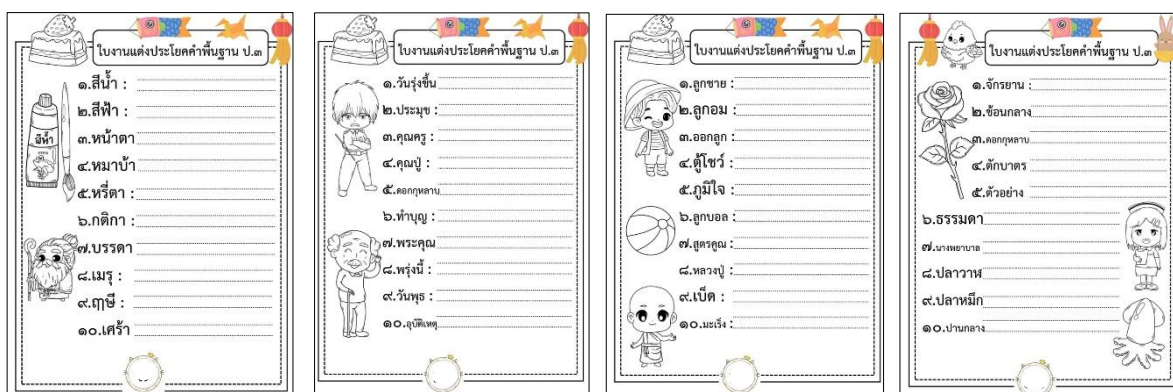 ใบงานแต่งประโยคคำพื้นฐาน ป.๓
๑.สีน้ำ :
๒.สีฟ้า :
๓.หน้าตา
๔.หมาบ้า
๕.หรี่ตา :
๖.กติกา :
๗.บรรดา
๘.เมรุ :
๙.ฤๅษี :
๑๐.เศร้า
สีน้ำ
ใบงานแต่งประโยคคำพื้นฐาน ป.๓
๑.วันรุ่งขึ้น
๒.ประมุข :
๓.คุณครู :
๔.คุณปู่ :
๕.ดอกกุหลาบ
๖.ทำบุญ :
๗.พระคุณ
๘.พรุ่งนี้ :
๙.วันพุธ :
๑๐.อุบัติเหตุ
ใบงานแต่งประโยคคำพื้นฐาน ป.๓
๑.ลูกชาย :
๒.ลูกอม :
๓.ออกลูก :
๔.ตู้โชว์ :
๕.ภูมิใจ :
๖.ลูกบอล :
๗.สูตรคูณ :
๘.หลวงปู่ :
๙.เบ็ด :
๑๐.มะเร็ง :
ใบงานแต่งประโยคคำพื้นฐาน ป.๓
๑.จักรยาน :
๒.ช้อนกลาง
๓.ดอกกุหลาบ
๔.ตักบาตร
๕.ตัวอย่าง
๖.ธรรมดา
๗.นางพยาบาล
๘.ปลาวาฬ
๙.ปลาหมึก
๑๐.ปานกลาง